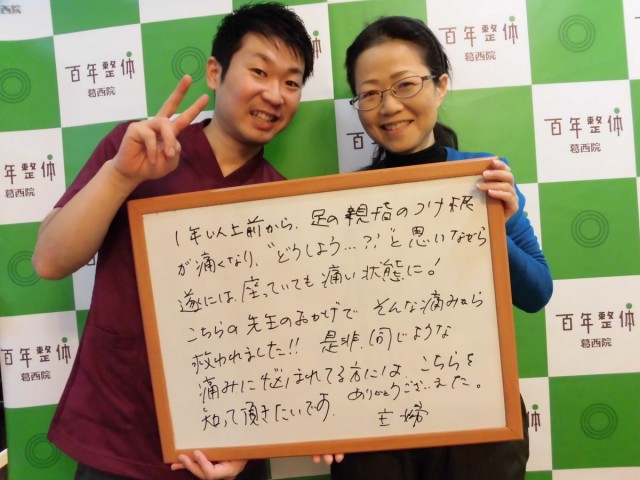 百年整体
葛西院
百年整体
葛西院
百年整体
葛西院
百年整体
葛西院
百年整体
葛西院
百年整体
葛西院
1年以上前から、足の親指のつけ根
が痛くなり、"どうしよう…?"と思いながら
遂には、座っていても痛い状態に!
こちらの先生のおかげで そんな痛みから
救われました!! 是非、同じような
痛みに悩まれてる方には、こちらを
知って頂きたいです。ありがとうございました。
主婦